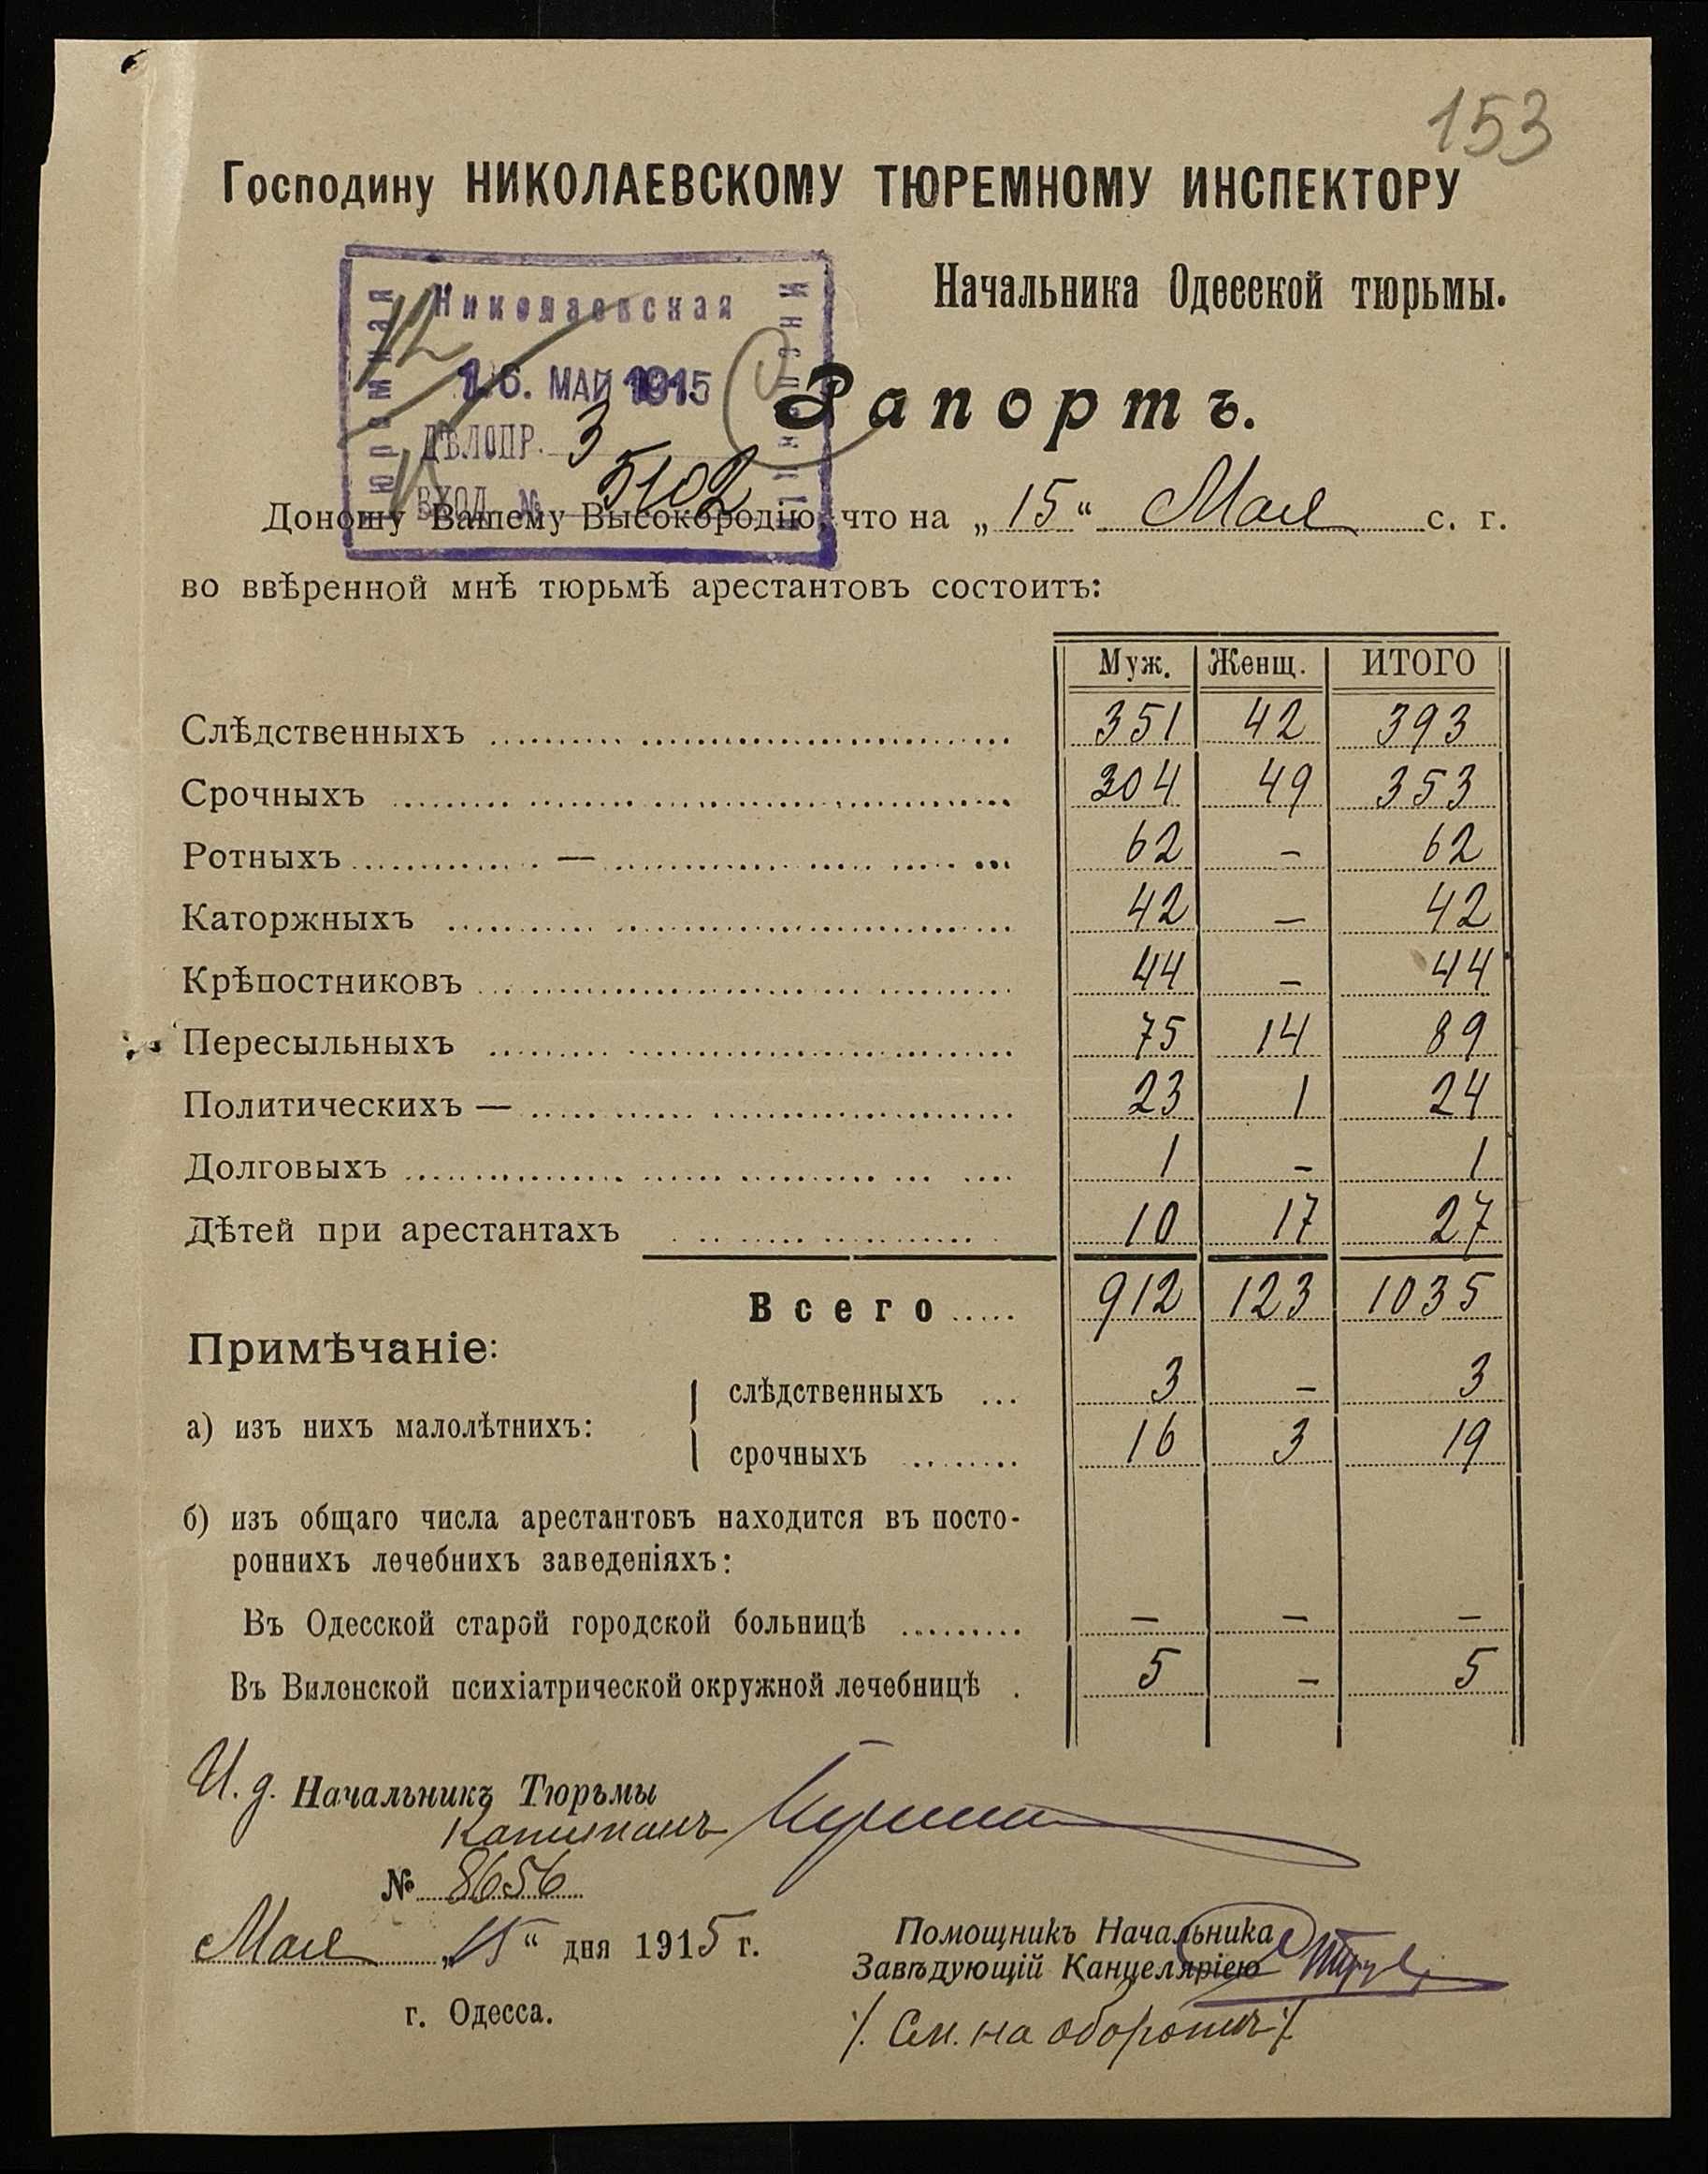 153
Господину НИКОЛАЕВСКОМУ ТЮРЕМНОМУ ИНСПЕКТОРУ
Начальника Одесской тюрьмы.
Николаевская
16. МАЙ 1915
ДѢЛОПР. 3
ВХОД. № 5102
Рапортъ.
Доношу Вашему Высокородію, что на „15“ Мая с. г.
во ввѣренной мнѣ тюрьмѣ арестантовъ состоитъ:
Муж. Женщ. ИТОГО
Слѣдственныхъ 351 42 393
Срочныхъ 304 49 353
Ротныхъ — 62 – 62
Каторжныхъ 42 – 42
Крѣпостниковъ 44 – 44
Пересыльныхъ 75 14 89
Политическихъ — 23 1 24
Долговыхъ 1 – 1
Дѣтей при арестантахъ 10 17 27
Всего 912 123 1035
Примѣчаніе:
а) изъ нихъ малолѣтнихъ:
слѣдственныхъ 3 – 3
срочныхъ 16 3 19
б) изъ общаго числа арестантовъ находится въ посто-
роннихъ лечебнихъ заведеніяхъ:
Въ Одесской старой городской больницѣ – – –
Въ Виленской психіатрической окружной лечебницѣ 5 – 5
И. д. Начальникъ Тюрьмы
Капитанъ
№ 8656
Мая „15“ дня 1915 г.
г. Одесса.
Помощникъ Начальника
Завѣдующій Канцеляріею
/. См. на оборотѣ ./